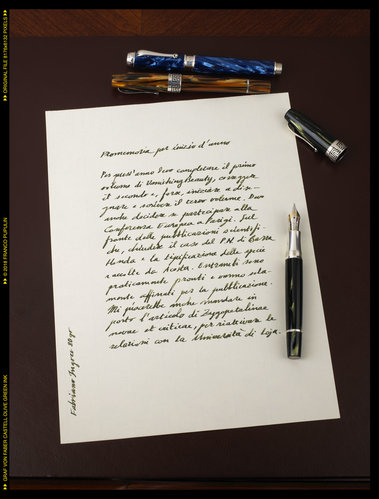 Promemoria per inizio d'anno
Per quest'anno devo completare il primo
volume di Vanishing Beauty, correggere
il secondo e, forse, iniziare a dise-
gnare e scrivere il terzo volume. Devo
anche decidere se partecipare alla
Conferenza Europea a Parigi. Sul
fronte delle pubblicazioni scientifi-
che, chiudere il caso del P.N. di Barra
Honda e la tipificazione delle specie
raccolte da Acosta. Entrambi sono
praticamente pronti e vanno sola-
mente affinati per la pubblicazione.
Mi piacerebbe anche mandare in
porto l'articolo di Zygopetalinae
novae et criticae, per riattivare le
relazioni con la Università di Loja.
Fabriano Ingres 90 gr
ORIGINAL FILE 8176x6132 PIXELS
© 2018 FRANCO PUPULIN
GRAF VON FABER-CASTELL OLIVE GREEN INK